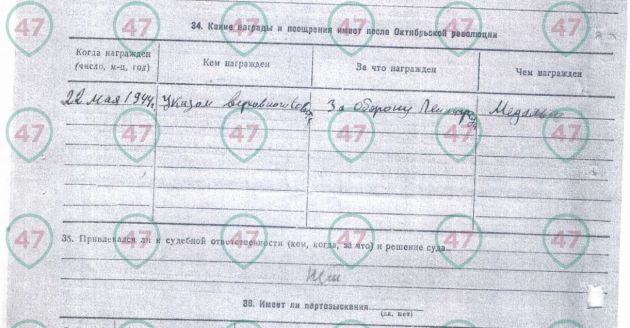 34. Какие награды и поощрения имеет после Октябрьской революции
Когда награжден (число, м-ц, год) Кем награжден За что награжден Чем награжден
22 мая 1944г. Указом За оборону Ленинграда Медалью
35. Привлекался ли к судебной ответственности (кем, когда, за что) и решение суда
36. Имеет ли партвзыскания
(да, нет)
47 47 47 47 47 47
47 47 47 47 47
47 47 47 47 47 47
47